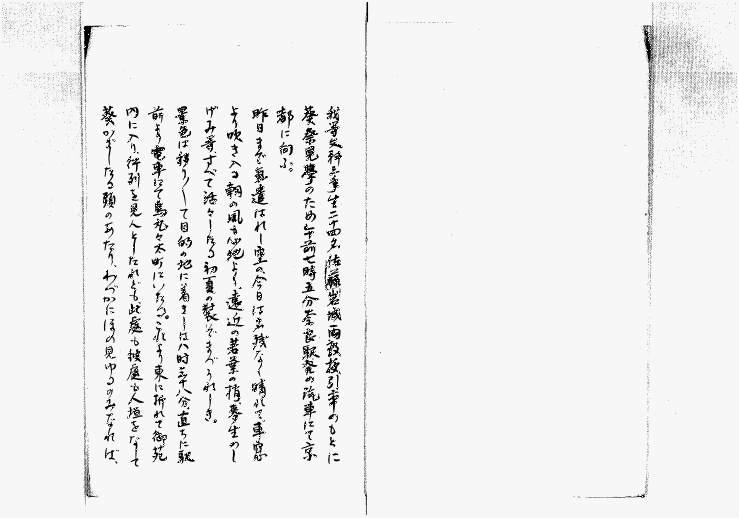 我等文科三年生二十四名、佐藤岩城両教授引率のもとに
葵祭見學のため午前七時五分奈良駅発の汽車にて京
都に向ふ。
昨日まで氣遣はれし空の、今日は名残なく晴れて、車窓
より吹き入る朝の風も心地よく、遠近の若葉の梢、麥生のし
げみ等、すべて活々したる初夏の装ぞまづうれしき。
景色は移り〳〵して目的の地に着きしは八時三十八分、直ちに駅
前より電車にて烏丸々太町にいたる。これより東に折れて御苑
内に入り、行列を見んとしたれども此處も彼處も人垣をなして
葵かざしたる頭のあたり、わづかにほの見ゆるのみなれば、